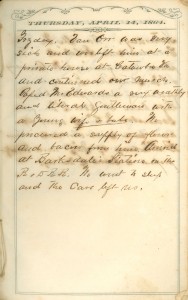 THURSDAY, APRIL 14, 1864.
Fryday. Van Orr was very
sick and we left him at a
private house at
and continued our march.
Mr. Edwards a very wealthy
and clever Gentleman with
a young wife & babe. He
procured a supply of flour
and bacon from
at Barksdale's Station on the
R & D R R. He went to sleep
and the Cars left us.